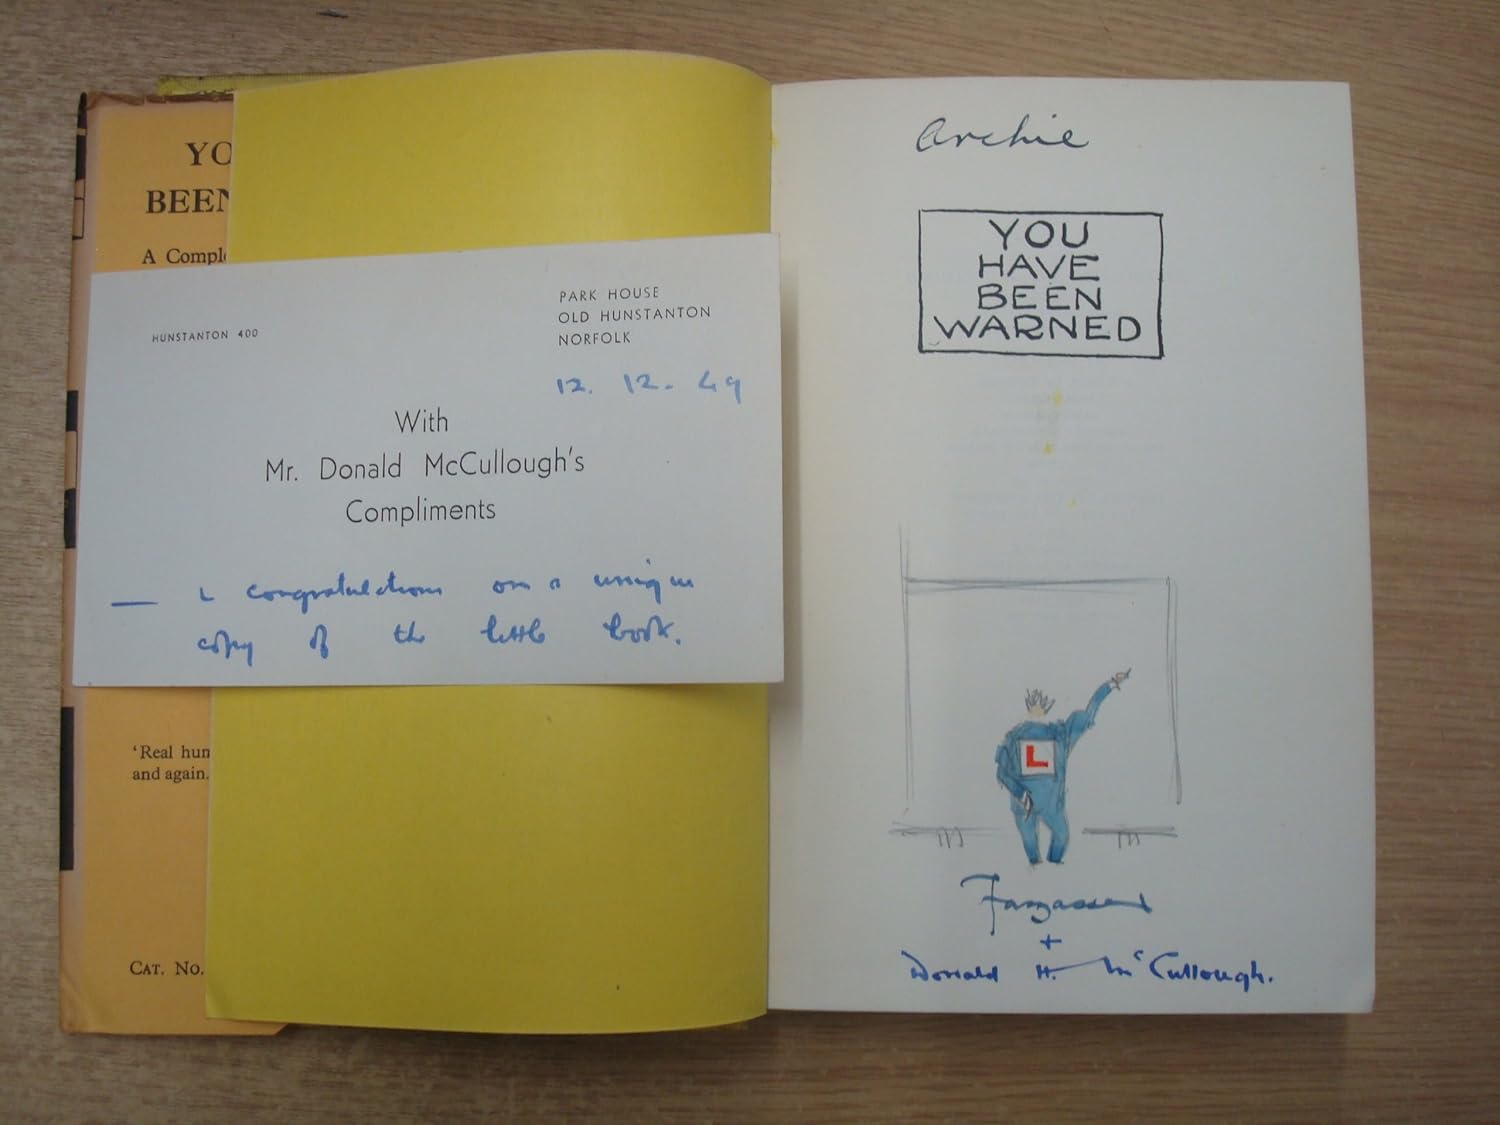 YO
BEEN
A Comple
HUNSTANTON 400
PARK HOUSE
OLD HUNSTANTON
NORFOLK
12. 12. 49
With
Mr. Donald McCullough's
Compliments
— & congratulations on a unique
copy of the little book.
'Real hum
and again.
CAT. NO.
Archie
YOU
HAVE
BEEN
WARNED
L
Fougasse
+
Donald H. McCullough.